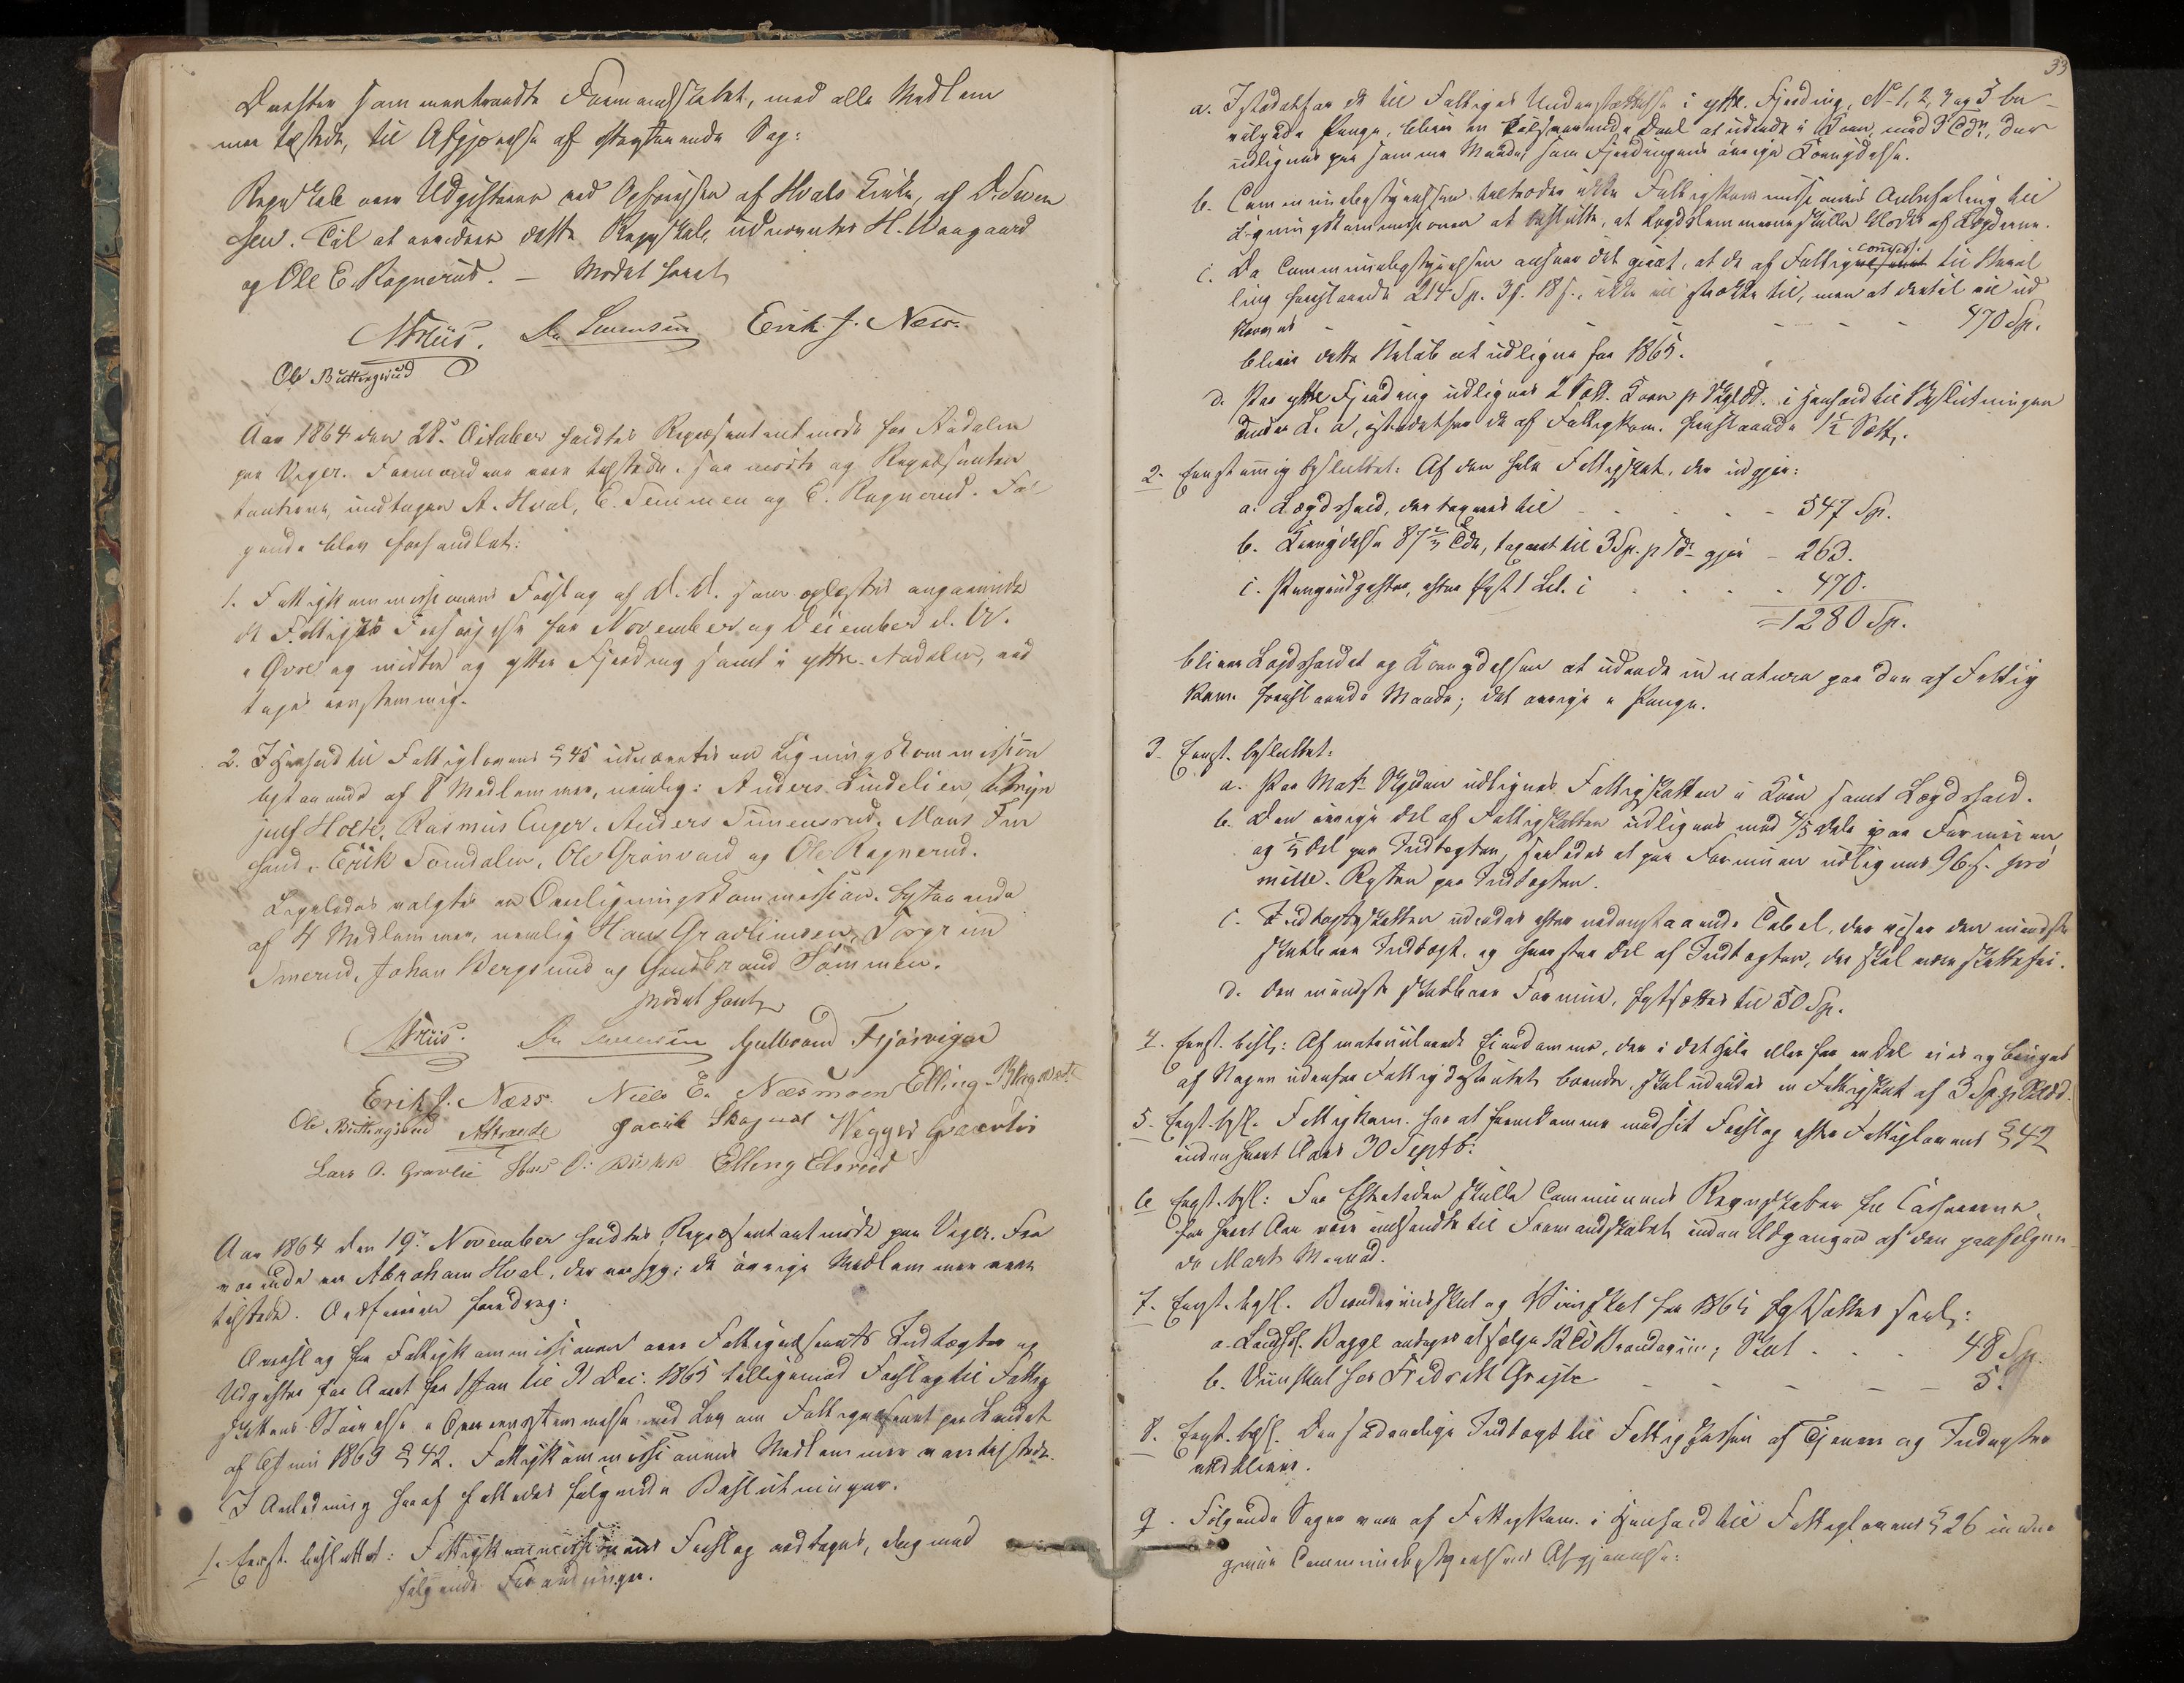 Derefter sammentraadte Formandskabet, med alle Medlem
mer tilstede, til Afgjørelse af efterstaaende Sag:
Regnskab over Udgifterne ved Opførelsen af Hvals Kirke, af D. Svend
sen. Til at revidere dette Regnskab, udnævntes H. Waagaard
og Ole E. Ragnerud. — Mødet hævet
Erik J. Næss.
Ole Buttingsrud
Aar 1864 den 28. October holdtes Repræsentantmøde for Aadalen
paa Veger. Formændene vare tilstede, saa misste og Repræsen
tanterne, undtagen A. Hval, E. Semmen og E. Ragnerud. Føl
gende blev forhandlet:
1. Fattigkommissionens Forslag af d. D. som oplæstes angaaende
de Fattiges Forsørgelse for November og December d. A.
i Øvre og midtre og yttre Fjerding samt i yttre Aadalen, ved
toges eenstemmig.
2. I Henhold til Fattiglovens § 45 udnævntes en Ligningskommission
bestaaende af 8 Medlemmer, nemlig: Anders Lindelien, Thrys
julf Holte, Rasmus Enger, Anders Simensrud, Mons
Erik Sørdalen, Ole Grønvold og Ole Ragnerud.
Ligeledes valgtes en Overligningskommission, bestaaende
af 4 Medlemmer, nemlig Hans Gravlimoen, Torgrim
Johan Bergsund og Gudbrand Sømmen.
Mødet hævet
Gulbrand Fjøsvigen
Erik J. Næss. Niels E. Næsmoen Elling
Ole Buttingsrud Jacob Skagnæs
Lars O. Gravlie Hans O: Elling Elsrud
Aar 1864 den 19. November holdtes Repræsentantmøde paa Veger. Fra
værende var Abraham Hval, der var syg; de øvrige Medlemmer vare
tilstede. Ordføreren foredrog:
Overslag fra Fattigkommissionen over Fattigvæsenets Indtægter og
Udgifter for Aaret fra 1 Jan til 31 Dec. 1865 tilligemed Forslag til Fattig
skattens Størrelse i Overensstemmelse med Lov om Fattigvæsenet paa Landet
af 6 Juni 1863 § 42. Fattigkommissionens Medlemmer vare tilstede.
I Anledning heraf fattedes følgende Beslutninger.
1. Eenst. besluttet: Fattigkommissionens Forslag vedtages, dog med
følgende Forandringer.
33
a. Istedetfor de til Fattiges Understøttelse i yttre Fjerding, No 1, 2, 4 og 5 be
vilgede Penge, bliver en tilsvarende Deel at udrede i Korn, med 9 Tdr, der
udlignes paa samme Maade, som Fjerdingens øvrige Kornydelse.
b. Communebestyrelsen tiltræder ikke Fattigkommissionens Anbefaling til
Ligningskommissionen at beslutte, at Lægdslemmerne skulle klædes af Lægderne.
c. Da Communebestyrelsen anseer det givet, at de af Fattigcommiss. til Udred
ling foreslaaede 214 Sp. 3 ƒ. 18 ƒ., ikke vil strække til, men at dertil vil ud
kræves - - - - - - - 470 Sp.
bliver dette Beløb at udligne for 1865.
d. Paa yttre Fjerding udlignes 2 Sætt. Korn pr Skyldd. i Henhold til Beslutningen
under L. a, istedetfor de af Fattigkom. foreslaaede 1½ Sætt.
2. Eenstemmig besluttet: Af den hele Fattigskat, der udgjør:
a. Lægdshold, der taxeres til - - - - 547 Sp.
b. Kornydelse 87⅔ Tdr, taxeret til 3 Sp. pr Td gjør - 263.
c. Pengeudgifter, efter Post 1 Lit. c - - - 470.
= 1280 Sp.
bliver Lægdsholdet og Kornydelsen at udrede in natura paa den af Fattig
kom. foreslaaede Maade; det øvrige i Penge.
3. Eenst. besluttet:
a. Paa Matr. Skylden udlignes Fattigskatten i Korn samt Lægdshold.
b. Den øvrige Del af Fattigskatten udlignes med 4/5 Dele paa Formuen
og 1/5 Del paa Indtægten, saaledes at paa Formuen udlignes 96 ƒ. pro
mille. Resten paa Indtægten.
c. Indtægtsskatten udredes efter nedenstaaende Tabel, der viser den mindste
skatbare Indtægt, og hvor stor Del af Indtægten, der skal være skattefri.
d. Den mindste skatbare Formue, fastsættes til 50 Sp.
4. Eenst. besl.: Af matriculerede Eiendomme, der i det Hele eller for en Del eies og bruges
af Nogen udenfor Fattigdistriktet boende, skal udredes en Fattigskat af 3 Sp. pr Skldd.
5. Eenst. besl. Fattigkom. har at fremkomme med sit Forslag efter Fattiglovens § 42
inden hvert Aars 30 Septb.
6. Eenst. besl.: For Eftertiden skulle Communens Regnskaber fra Casserere
for hvert Aar være indsendte til Formandskabet, inden Udgangen af den paafølgen
de Marts Maaned.
7. Eenst. besl. Brændeviinsskat og Viinskat for 1865 fastsættes saal.:
a. Landh. Bagge antages at sælge 12 Td Brændeviin; Skat - - - 48 Sp.
b. Viinskat hos Fredrik - - - - - 5.
8. Eenst. besl. Den sædvanlige Indtægt til Fattigkassen af Tjenere og Inderster
vedbliver.
9. Følgende Sager vare af Fattigkom. i Henhold til Fattiglovens § 26 inden
given Communebestyrelsens Afgjørelse: